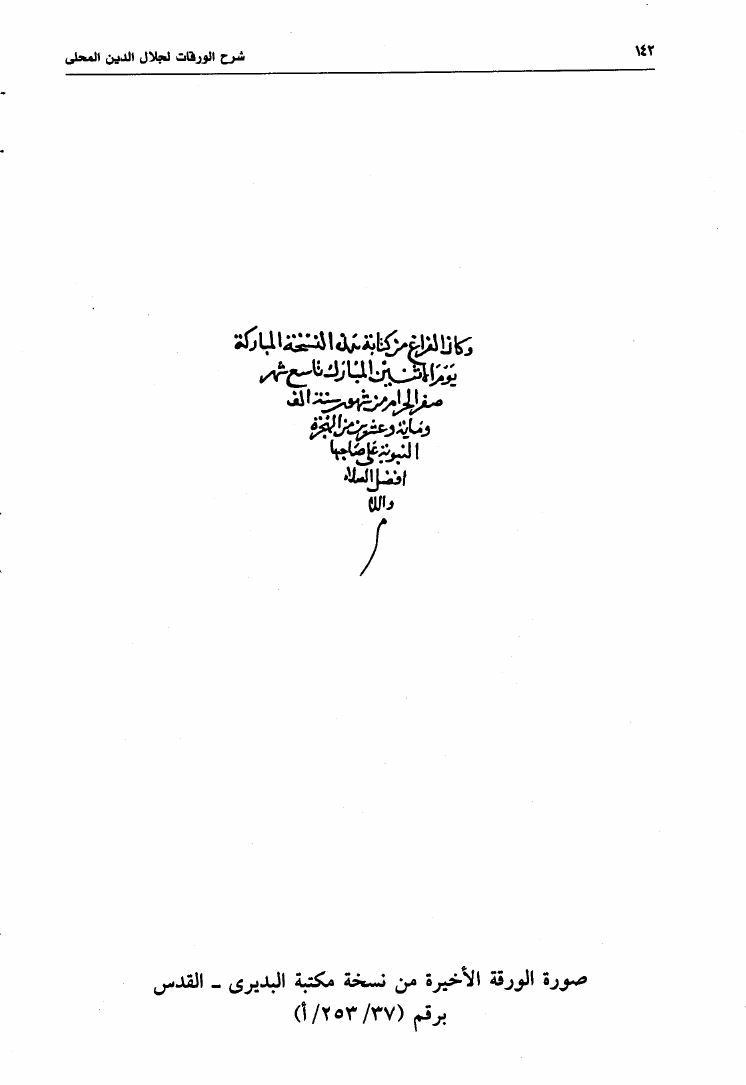 ١٤٢
شرح الورقات لجلال الدين المحلى
وكان الفراغ من كتابة هذه النسخة المباركة
يوم الاثنين المبارك تاسع شهر
صفر الحرام من شهور سنة الف
وماية وعشرين من الهجرة
النبوية على صاحبها
افضل الصلاه
والسلا
م
صورة الورقة الأخيرة من نسخة مكتبة البديرى – القدس
برقم (٣٧/ ٢٥٣/ أ)